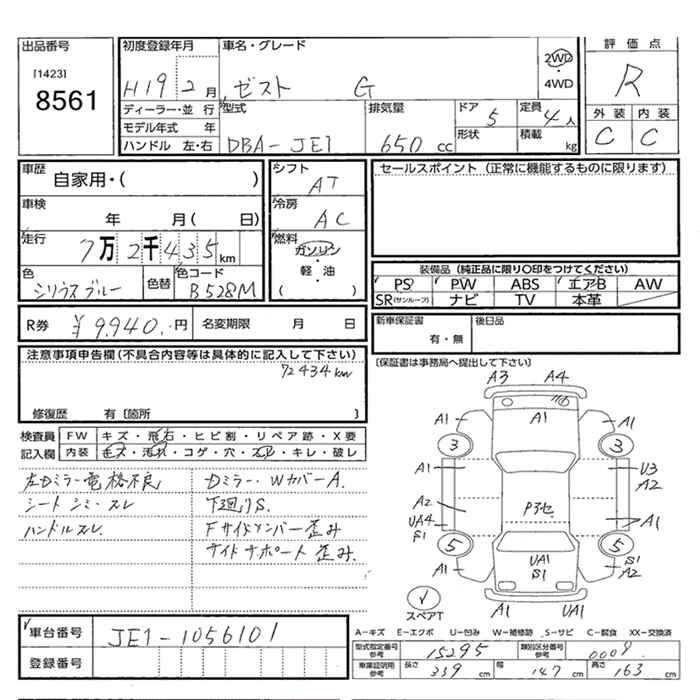 出品番号 初度登録年月 車名・グレード 評価点
[1423]
8561
H19 2月 ゼスト G 2WD・4WD R
ディーラー・並行 型式 排気量 ドア 5 定員 4人 外装 内装
モデル年式 年 形状 積載 C C
ハンドル 左・右 DBA-JE1 650cc kg
車歴 シフト セールスポイント (正常に機能するものに限ります)
自家用・( ) AT
車検 冷房
年 月( 日) AC
走行 燃料
7万2千435km ガソリン
装備品 (純正品に限り○印をつけてください)
色 色替 色コード ・軽油
シリウスブルー B528M ( )
PS PW ABS エアB AW
SR(サンルーフ) ナビ TV 本革
R券 ¥9,940.-円 名変期限 月 日
新車保証書 有・無 後日品
注意事項申告欄(不具合内容等は具体的に記入して下さい)
72434km
[保証書は事務局へ提出して下さい]
修復歴 有 [箇所 ]
検査員 FW キズ・飛石・ヒビ割・リペア跡・X要
記入欄 内装 キズ・汚れ・コゲ・穴・スレ・キレ・破レ
左Dミラー電格不良 Dミラー・WカバーA.
シートシミ・スレ 下廻りS.
ハンドルスレ. Fサイドメンバー歪み
サイドサポート歪み.
A3 A4
A1 A1 A1
3 3
A1 U3
A2
A2 P3セ
UA4 A1
S1
5 5
A1 UA1 S1
S1 A2
スペアT A1 UA1
車台番号 JE1-1056101
登録番号
A-キズ E-エクボ U-凹み W-補修跡 S-サビ C-腐食 XX-交換済
型式指定番号 参考 15295 類別区分番号 参考 0009
車庫証明用 参考 長さ 339cm 幅 147cm 高さ 163cm